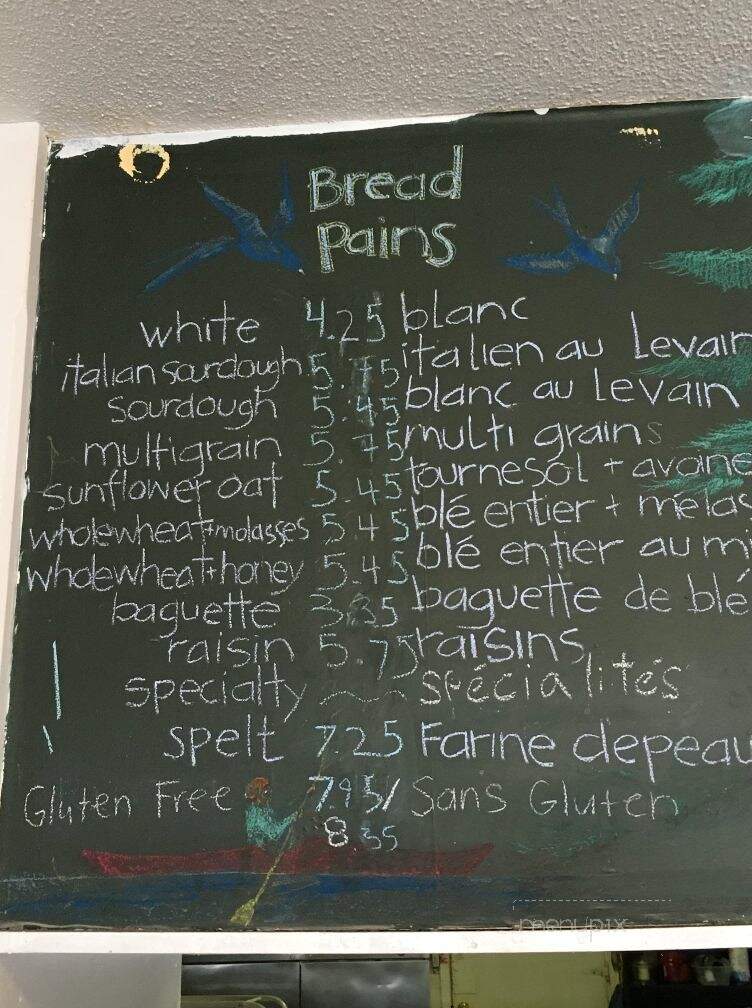 Bread
Pains
white 4.25 blanc
italian sourdough 5.75 italien au Levain
sourdough 5.45 blanc au Levain
multigrain 5.75 multi grains
sunflower oat 5.45 tournesol + avoine
wholewheat+molasses 5.45 blé entier + mélas
wholewheat+honey 5.45 blé entier au mi
baguette 3.85 baguette de blé
raisin 5.75 raisins
specialty ~~ spécialités
spelt 7.25 Farine d'epeau
Gluten Free 7.95/ Sans Gluten
8.55
menupix